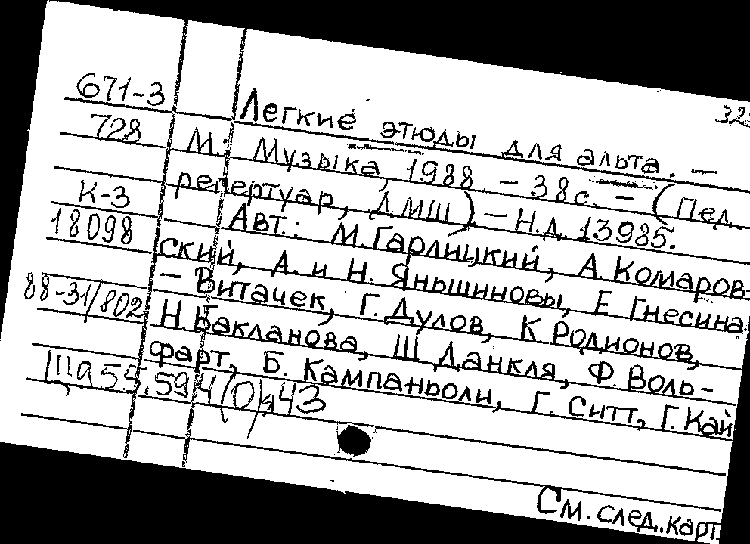 323
671-3 Легкие этюды для альта. –
728 М.: Музыка, 1988. – 38 с. – (Пед.
репертуар, ДМШ) – Н.д. 13985.
К-3 Авт.: М. Гарлицкий, А. Комаров-
18098 ский, А. и Н. Яньшиновы, Е. Гнесина-
- Витачек, Г. Дулов, К. Родионов,
88-31/802 Н. Бакланова, Ш. Данкля, Ф. Воль-
фарт, Б. Кампаньоли, Г. Ситт, Г. Кай
Ща55.594(0)я43
См. след. карт.